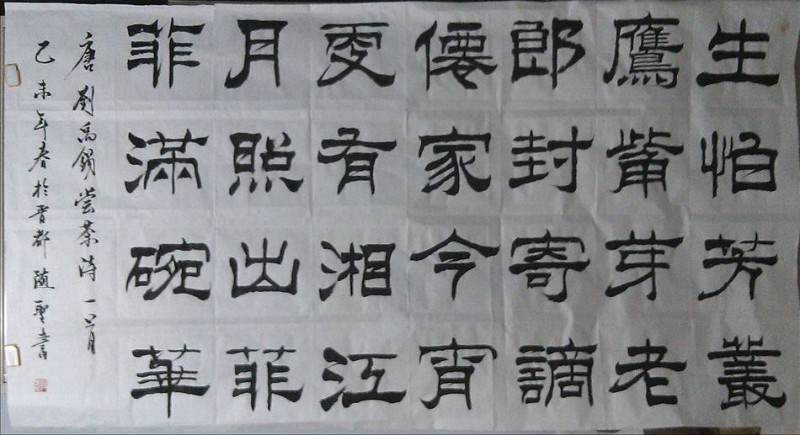 生怕芳叢
鷹觜芽老
郎封寄謫
僊家今宵
更有湘江
月照出菲
菲滿碗華
唐劉禹錫嘗茶詩一首
乙未年春於晋都随聖書